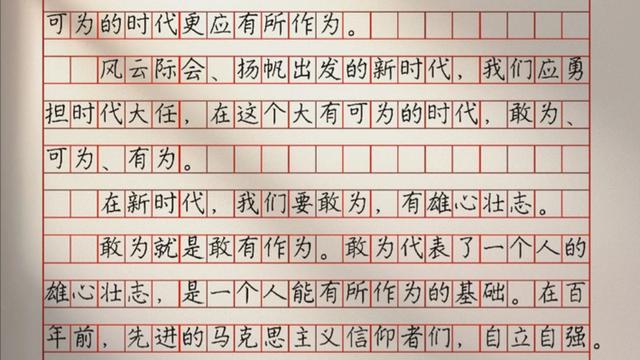 可为的时代更应有所作为。
风云际会、扬帆出发的新时代，我们应勇
担时代大任，在这个大有可为的时代，敢为、
可为、有为。
在新时代，我们要敢为，有雄心壮志。
敢为就是敢有作为。敢为代表了一个人的
雄心壮志，是一个人能有所作为的基础。在百
年前，先进的马克思主义信仰者们，自立自强。